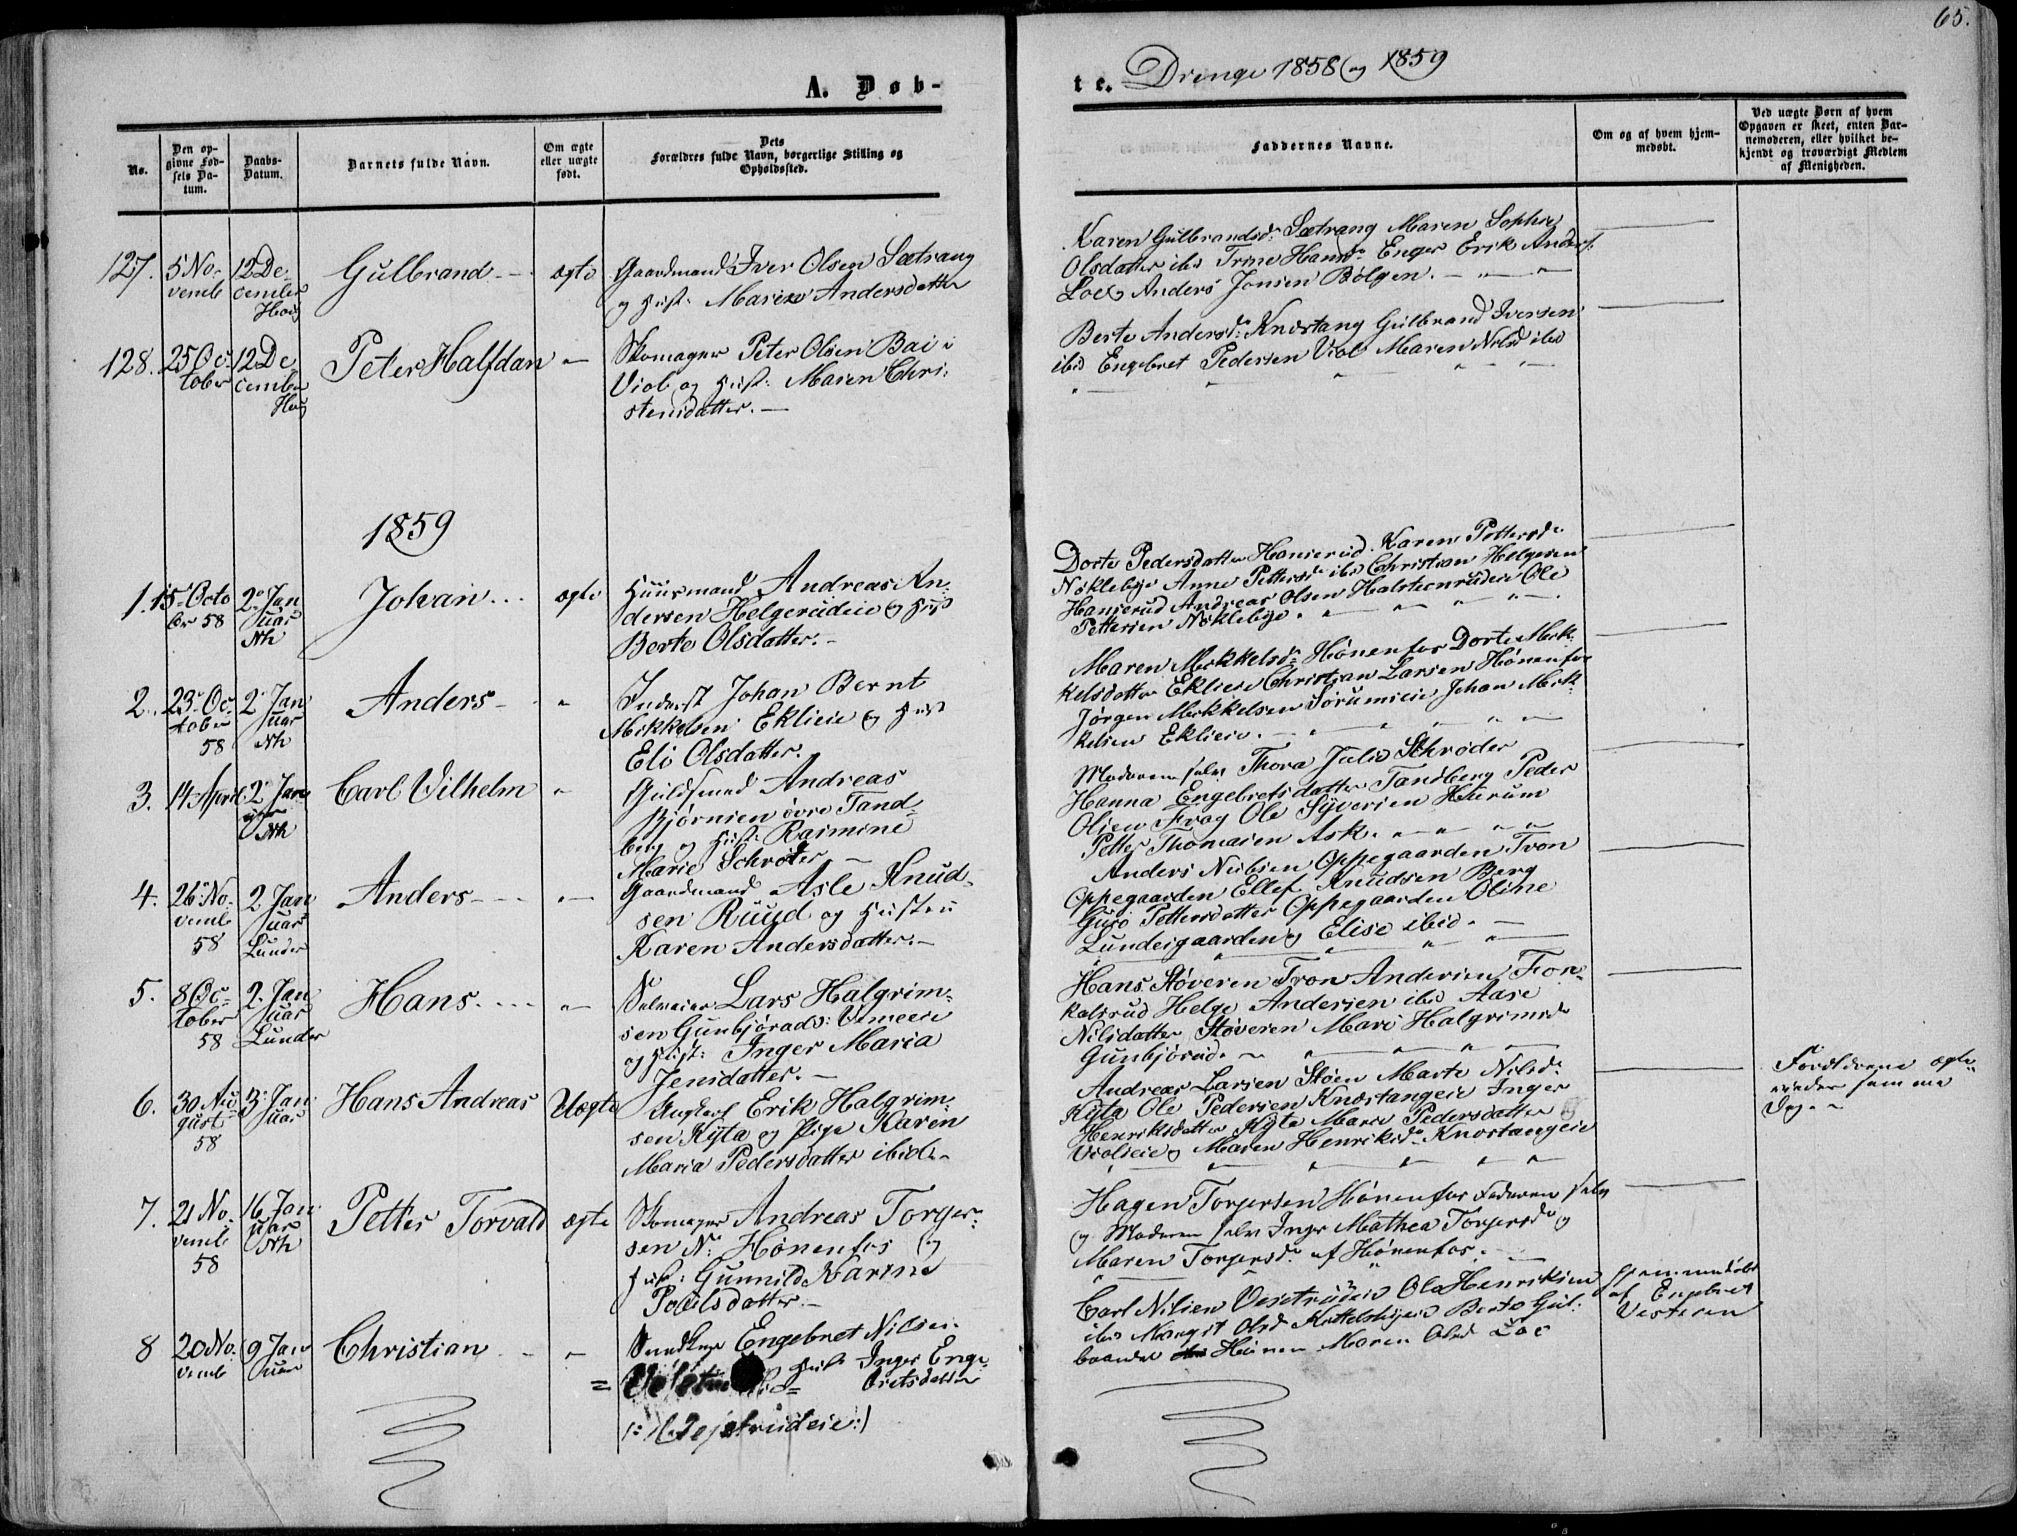 65.
A. Døb-
te. Drenge 1858 og 1859
No.
Den op-
givne Fød-
sels Da-
tum.
Daabs-
Datum.
Barnets fulde Navn.
Om ægte
eller uægte
født.
Dets
Forældres fulde Navn, borgerlige Stilling og
Opholdssted.
Faddernes Navne.
Om og af hvem hjem-
medøbt.
Ved uægte Børn af hvem
Opgaven er skeet, enten Bar-
nemoderen, eller hvilket be-
kjendt og troværdigt Medlem
af Menigheden.
127. 5 No- 12 De- Gulbrand ægte Gaardmand Iver Olsen Sætrang
vemb cember og Hust: Maren Andersdatter
Houg
Karen Gulbrandsd: Sætrang Maren Sophie
Olsdatter ibd Trine Hansd Enger Erik Anders:
Loe Anders Jonsen Bølgen.
128. 25 Oc- 12 De- Peter Halfdan Skomager Peter Olsen Bai
tober cember Viol og Hust: Maren Chri-
Houg stensdatter.
Berte Andersd: Knæstang Gulbrand Iversen
ibd Engebret Pedersen Viol Maren Nilsd ibd
1859
1. 15 Octo 2 Jan Johan ægte Huusmand Andreas An-
ber 58 uar dersen Helgerudeie og Hust
Nh Berte Olsdatter.
Dorte Pedersdatter Hanserud Karen Pettersd
Nøklebye Anne Pettersd ibd Christian Helgesen
Hanserud Andreas Olsen Halsteenrudeie Ole
Pettersen Nøklebye.
2. 23 Oc- 2 Jan Anders Inderst Johan Bernt
tober uar Mikkelsen Eklieie og Hust
58 Nh Eli Olsdatter.
Maren Mikkelsd Hønenfos Dorte Mik-
kelsdatter Eklieie Christian Larsen Hønenfos
Jørgen Mikkelsen Sørumieie Johan Mik-
kelsen Eklieie.
3. 14 April 2 Jan Carl Vilhelm Guldsmed Andreas
uar Bjørnsen øvre Tand-
Nh berg og Hust: Rasmine
Marie Schrøder
Moderen selv Thora Julie Schrøder
Hanna Engebretsdatter Tandberg Peder
Olsen Frog Ole Syversen Hurum
Petter Thomasen Ask.
4. 26 No- 2 Jan Anders Gaardmand Asle Knud-
vemb uar sen Ruud og Hustru
58 Lunder Karen Andersdatter.
Anders Nielsen Oppegaarden Tron
Oppegaarden Ellef Knudsen Berg
Guro Pettersdatter Oppegaarden Oline
Lundesgaarden og Elise ibid.
5. 8 Oc- 2 Jan Hans Selveier Lars Halgrim-
tober uar sen Gunbjørud
58 Lunder og Hust: Inger Maria
Jensdatter.
Hans Støveren Tron Andersen Tron-
kelsrud Helge Andersen ibd Aase
Nilsdatter Støveren Mari Halgrimsd
Gunbjørud.
6. 30 Au- 3 Jan Hans Andreas Uægte Ungkarl Erik Halgrim-
gust uar sen Kyta og Pige Karen
58 Maria Pedersdatter ibid.
Andreas Larsen Støen Marte Nilsd:
Kyta Ole Pedersen Knæstangeie Inger
Henriksdatter Kyta Mari Pedersdatter
Violieie og Maren Henriksd Knæstangeie
Forældrene ægte-
viede samme
Dag.
7. 21 No- 16 Jan Petter Torvald ægte Skomager Andreas Torger-
vemb uar sen N. Hønenfos og
58 Nh Hust: Gunnild Karine
Poulsdatter.
Hagen Torgersen Hønenfos Faderen selv
og Moderen selv Inger Mathea Torgersd og
Maren Torgersd af Hønenfos.
8 20 No- 9 Jan Christian Snedker Engebret Nilsen
vemb uar og Hust Inger Enge-
bretsdatter
Carl Nilsen Vesetrudeie Ole Henriksen
ibd Margit Olsd Kittelsbyeie Berte Gul-
brandsd Heinen Maren Olsd Loe
Hjemmedøbt
af Engebret
Vestern